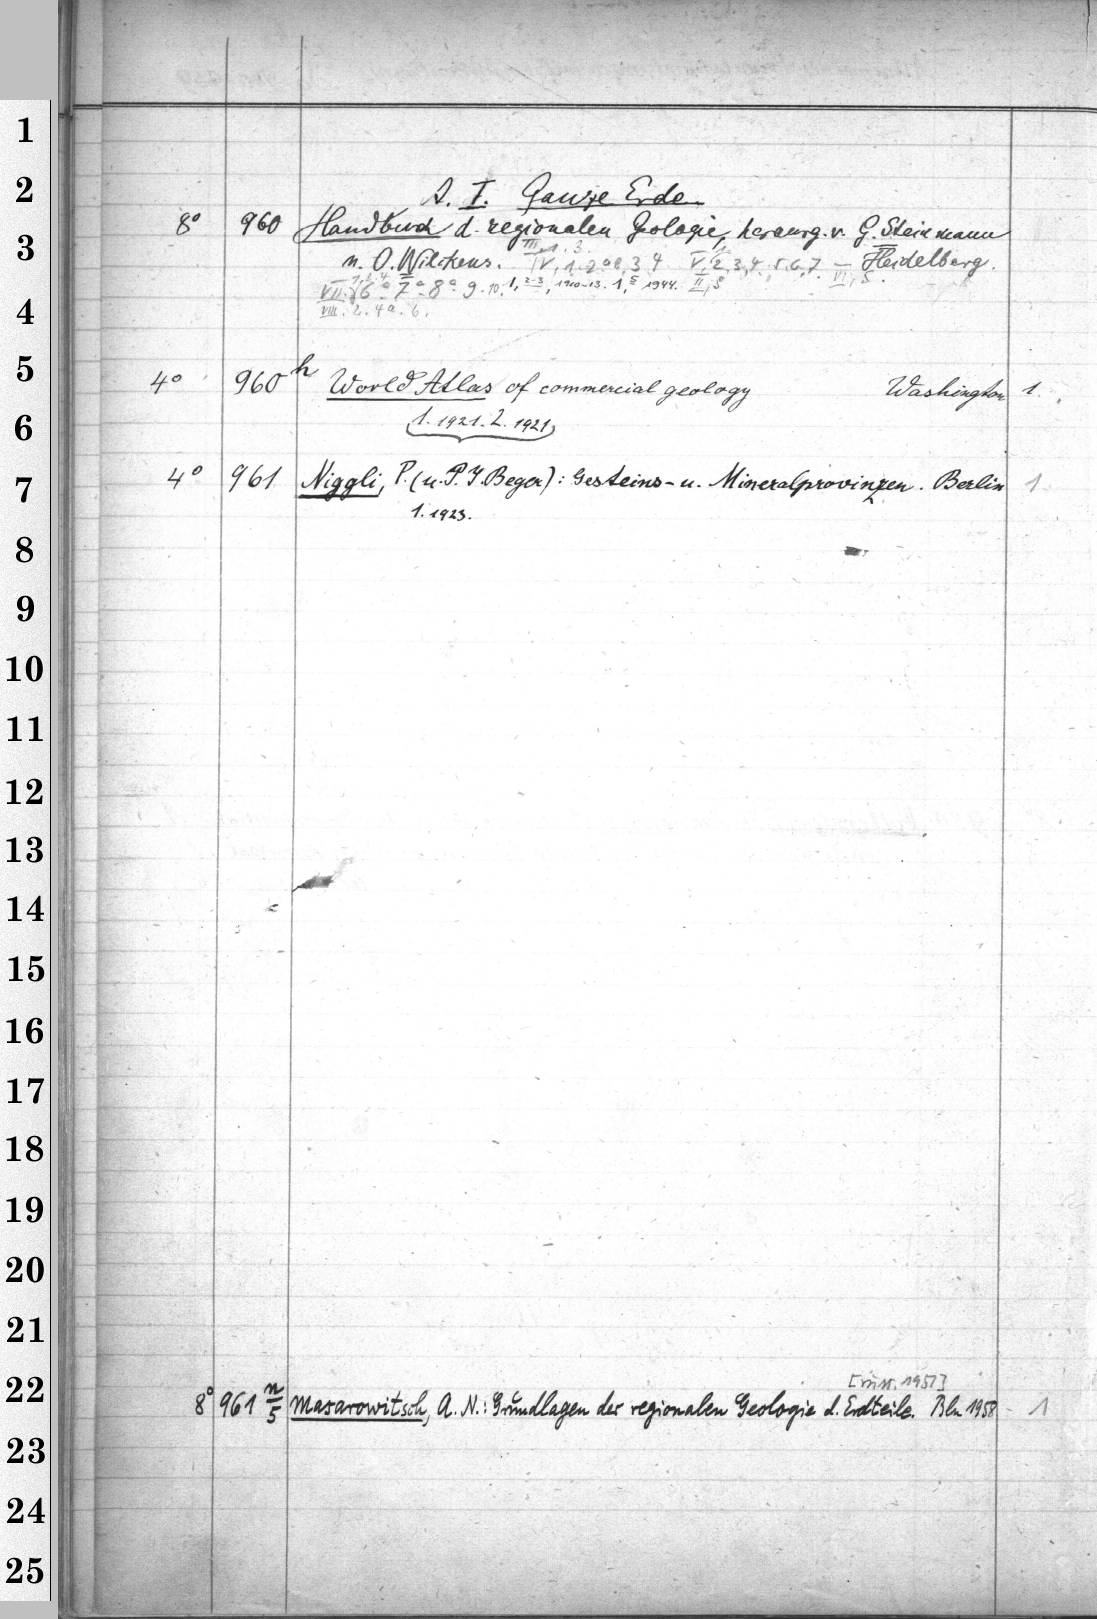 1
2
A. I. Ganze Erde
8° 960 Handbuch d. regionalen Geologie, herausg. v. G. Steinmann
3
u. O. Wilckens. III, 1. 3. IV, 1. 2a 3 4 V, 2, 3, 4, 5. 6, 7. — VI, 5. Heidelberg.
VII. 6a 7a 8a 9. 10. 1, 2-3, 1910-13. 1, 5 1944. II, 5
4
VIII. 2. 4a. 6.
5
4° 960h World Atlas of commercial geology Washington 1.
6
1. 1921. 2. 1921
7
4° 961 Niggli, P. (u. P. J. Beger): Gesteins- u. Mineralprovinzen. Berlin 1
1. 1923.
8
9
10
11
12
13
14
15
16
17
18
19
20
21
22
[russ. 1951]
8° 961 n/5 Masarowitsch, A. N.: Grundlagen der regionalen Geologie d. Erdteile. Bln 1958 1
23
24
25